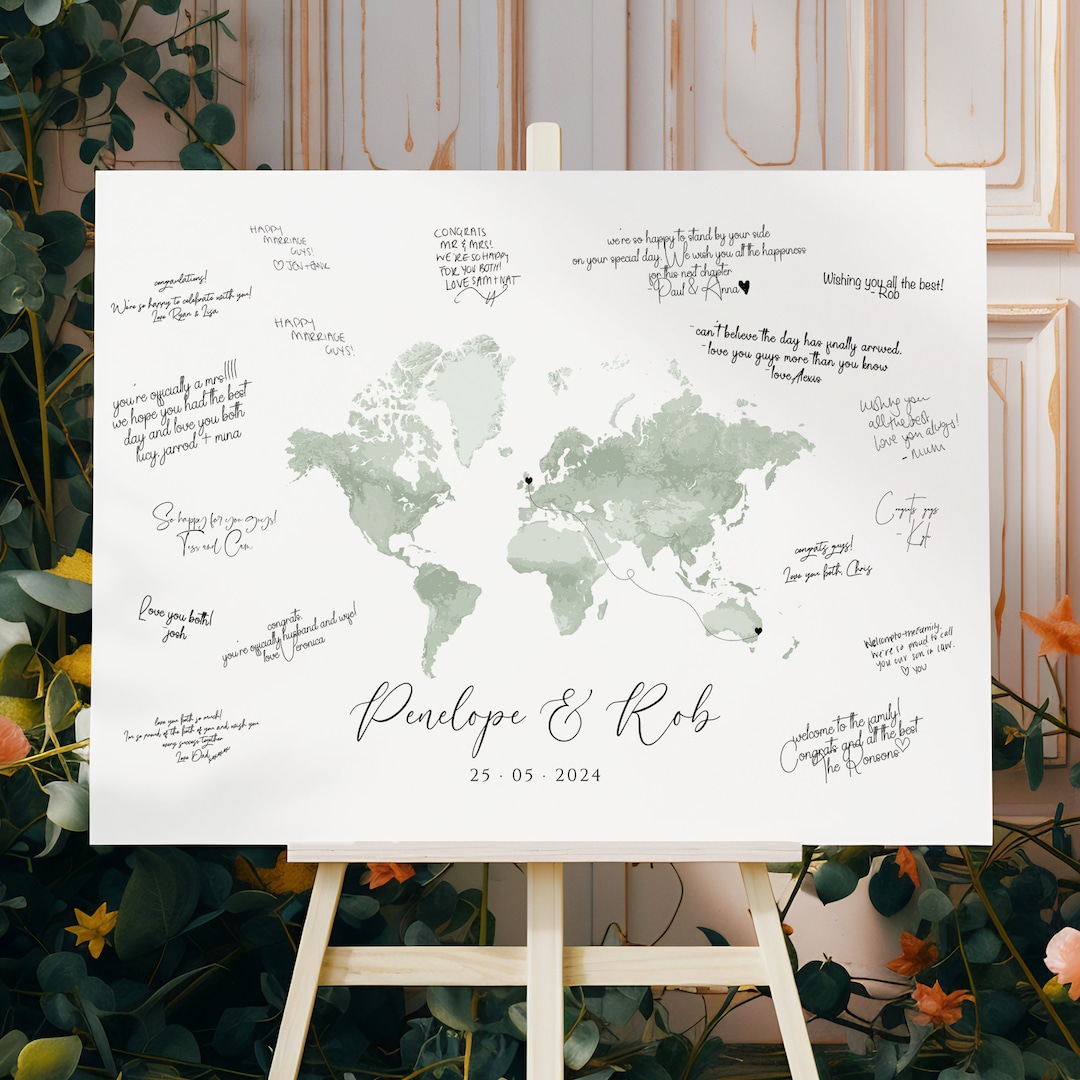 HAPPY
MARRIAGE
GUYS!
♡ JEN + HANK
CONGRATS
MR & MRS!
WE'RE SO HAPPY
FOR YOU BOTH!
LOVE SAM + NAT
we're so happy to stand by your side
on your special day. We wish you all the happiness
for this next chapter
Paul & Anna♥
Wishing you all the best!
-Rob
congradulations!
We're so happy to celebrate with you!
Love Ryan & Lisa
HAPPY
MARRIAGE
GUYS!
can't believe the day has finally arrived.
love you guys more than you know
love Alexis
you're officially a mrs!!!!
we hope you had the best
day and love you both
lucy, jarrod + mina
Wishing you
all the best
love you always!
- mum
So happy for you guys!
Tess and Cam
Congrats guys
congrats guys!
Love you both, Chris
Love you both!
-josh
congrats.
you're officially husband and wife!
love Veronica
Welcome to the family,
We're so proud to call
you our son in law.
♡ you
love you both so much!
Im so proud of the both of you and wish you
every success together
Love Dad
welcome to the family!
Congrats and all the best
The Ronsons♡
Penelope & Rob
25 · 05 · 2024